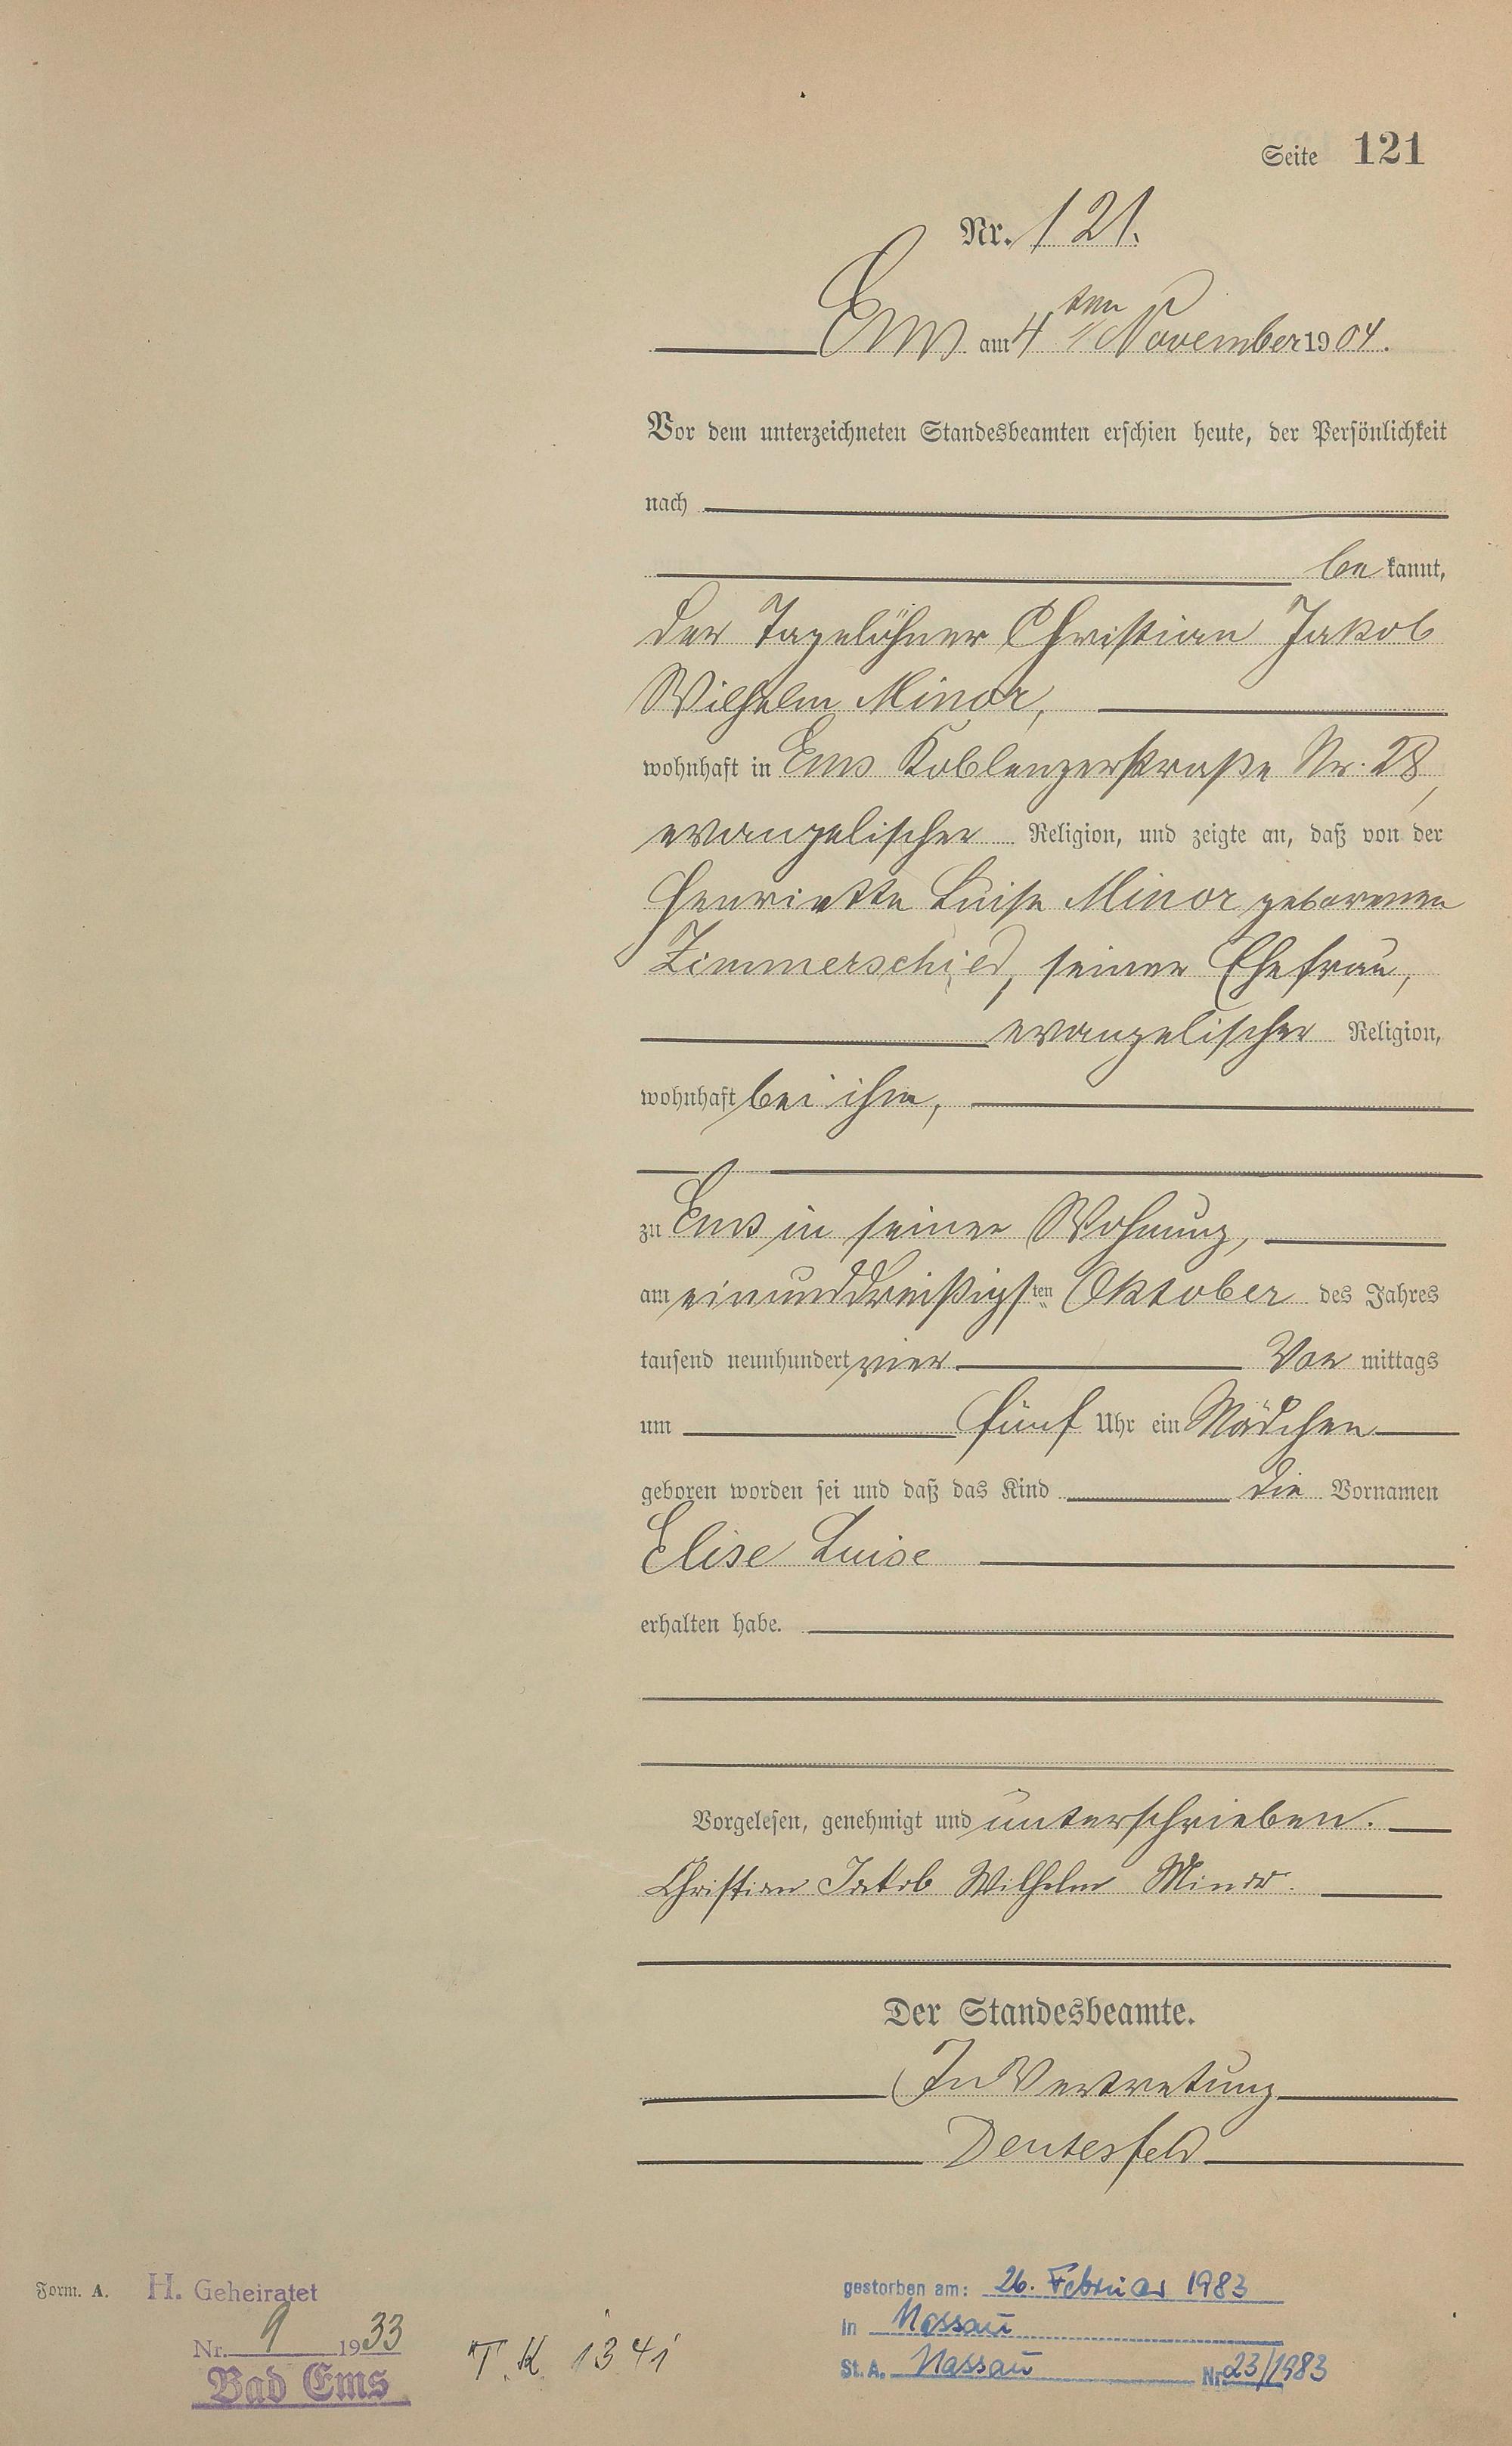 Seite 121
Nr. 121.
Ems am 4ten November 1904.
Vor dem unterzeichneten Standesbeamten erschien heute, der Persönlichkeit
nach
be kannt,
der Tagelöhner Christian Jakob
Wilhelm Minor,
wohnhaft in Ems Koblenzerstraße Nr. 28,
evangelischer Religion, und zeigte an, daß von der
Henriette Luise Minor geborenen
Zimmerschied, seiner Ehefrau,
evangelischer Religion,
wohnhaft bei ihm,
zu Ems in seiner Wohnung,
am einunddreißigsten Oktober des Jahres
tausend neunhundert vier Vor mittags
um fünf Uhr ein Mädchen
geboren worden sei und daß das Kind die Vornamen
Elise Luise
erhalten habe.
Vorgelesen, genehmigt und unterschrieben.
Christian Jakob Wilhelm Minor.
Der Standesbeamte.
In Vertretung
Deutesfeld
Form. A. H. Geheiratet
Nr. 9 1933
Bad Ems
T. K. 1341
gestorben am: 26. Februar 1983
in Nassau
St. A. Nassau Nr. 23/1983